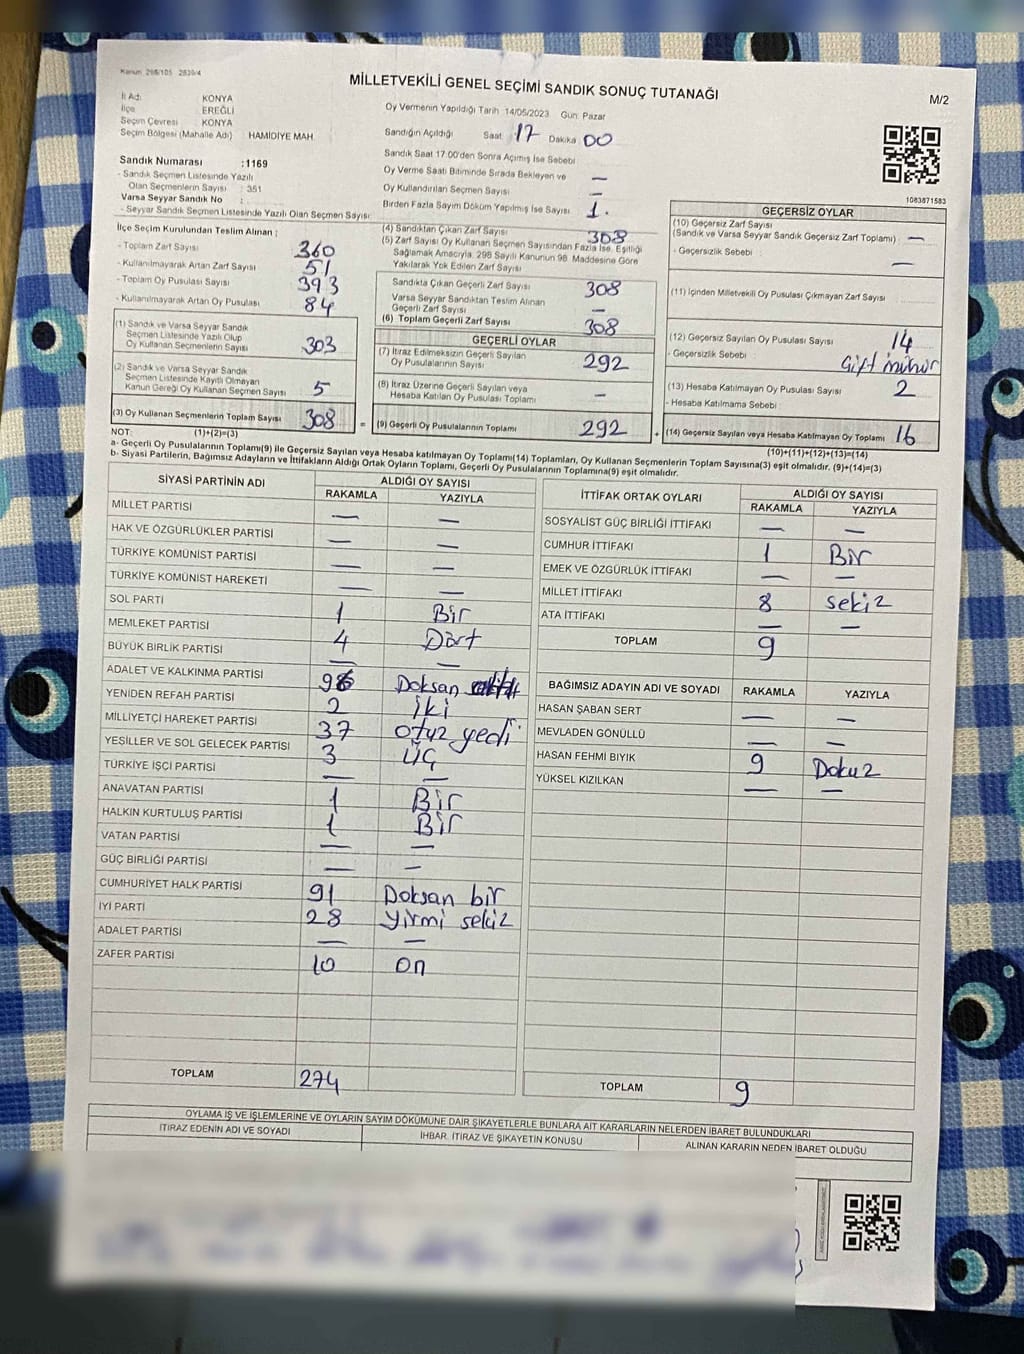 Kanun 298/105 2839/4
MİLLETVEKİLİ GENEL SEÇİMİ SANDIK SONUÇ TUTANAĞI
M/2
İl Adı: KONYA
İlçe : EREĞLİ
Seçim Çevresi : KONYA
Seçim Bölgesi (Mahalle Adı) : HAMİDİYE MAH
Oy Vermenin Yapıldığı Tarih : 14/05/2023 Gün: Pazar
Sandığın Açıldığı Saat 17 Dakika 00
Sandık Saat 17:00'den Sonra Açılmış İse Sebebi
Oy Verme Saati Bitiminde Sırada Bekleyen ve —
Oy Kullandırılan Seçmen Sayısı —
Birden Fazla Sayım Döküm Yapılmış İse Sayısı 1.
1083871583
Sandık Numarası :1169
- Sandık Seçmen Listesinde Yazılı
Olan Seçmenlerin Sayısı : 351
Varsa Seyyar Sandık No :
- Seyyar Sandık Seçmen Listesinde Yazılı Olan Seçmen Sayısı:
İlçe Seçim Kurulundan Teslim Alınan ;
- Toplam Zarf Sayısı 360
- Kullanılmayarak Artan Zarf Sayısı 51
- Toplam Oy Pusulası Sayısı 393
- Kullanılmayarak Artan Oy Pusulası 84
(1) Sandık ve Varsa Seyyar Sandık
Seçmen Listesinde Yazılı Olup
Oy Kullanan Seçmenlerin Sayısı 303
(2) Sandık ve Varsa Seyyar Sandık
Seçmen Listesinde Kayıtlı Olmayan
Kanun Gereği Oy Kullanan Seçmen Sayısı 5
(3) Oy Kullanan Seçmenlerin Toplam Sayısı 308 =
(4) Sandıktan Çıkan Zarf Sayısı 308
(5) Zarf Sayısı Oy Kullanan Seçmen Sayısından Fazla İse, Eşitliği
Sağlamak Amacıyla, 298 Sayılı Kanunun 98. Maddesine Göre
Yakılarak Yok Edilen Zarf Sayısı
Sandıkta Çıkan Geçerli Zarf Sayısı 308
Varsa Seyyar Sandıktan Teslim Alınan
Geçerli Zarf Sayısı —
(6) Toplam Geçerli Zarf Sayısı 308
GEÇERLİ OYLAR
(7) İtiraz Edilmeksizin Geçerli Sayılan
Oy Pusulalarının Sayısı 292
(8) İtiraz Üzerine Geçerli Sayılan veya
Hesaba Katılan Oy Pusulası Toplamı —
(9) Geçerli Oy Pusulalarının Toplamı 292 +
GEÇERSİZ OYLAR
(10) Geçersiz Zarf Sayısı
(Sandık ve Varsa Seyyar Sandık Geçersiz Zarf Toplamı) —
- Geçersizlik Sebebi —
(11) İçinden Milletvekili Oy Pusulası Çıkmayan Zarf Sayısı
(12) Geçersiz Sayılan Oy Pusulası Sayısı 14
- Geçersizlik Sebebi Çift mühür
(13) Hesaba Katılmayan Oy Pusulası Sayısı 2
- Hesaba Katılmama Sebebi
(14) Geçersiz Sayılan veya Hesaba Katılmayan Oy Toplamı 16
NOT: (1)+(2)=(3) (10)+(11)+(12)+(13)=(14)
a- Geçerli Oy Pusulalarının Toplamı(9) ile Geçersiz Sayılan veya Hesaba katılmayan Oy Toplamı(14) Toplamları, Oy Kullanan Seçmenlerin Toplam Sayısına(3) eşit olmalıdır. (9)+(14)=(3)
b- Siyasi Partilerin, Bağımsız Adayların ve İttifakların Aldığı Ortak Oyların Toplamı, Geçerli Oy Pusulalarının Toplamına(9) eşit olmalıdır.
SİYASİ PARTİNİN ADI ALDIĞI OY SAYISI
RAKAMLA YAZIYLA
MİLLET PARTİSİ — —
HAK VE ÖZGÜRLÜKLER PARTİSİ — —
TÜRKİYE KOMÜNİST PARTİSİ — —
TÜRKİYE KOMÜNİST HAREKETİ — —
SOL PARTİ 1 Bir
MEMLEKET PARTİSİ 4 Dört
BÜYÜK BİRLİK PARTİSİ — —
ADALET VE KALKINMA PARTİSİ 96 Doksan
YENİDEN REFAH PARTİSİ 2 iki
MİLLİYETÇİ HAREKET PARTİSİ 37 otuz yedi
YEŞİLLER VE SOL GELECEK PARTİSİ 3 ÜÇ
TÜRKİYE İŞÇİ PARTİSİ — —
ANAVATAN PARTİSİ 1 Bir
HALKIN KURTULUŞ PARTİSİ 1 Bir
VATAN PARTİSİ — —
GÜÇ BİRLİĞİ PARTİSİ — —
CUMHURİYET HALK PARTİSİ 91 Doksan bir
İYİ PARTİ 28 yirmi sekiz
ADALET PARTİSİ — —
ZAFER PARTİSİ 10 on
TOPLAM 274
İTTİFAK ORTAK OYLARI ALDIĞI OY SAYISI
RAKAMLA YAZIYLA
SOSYALİST GÜÇ BİRLİĞİ İTTİFAKI — —
CUMHUR İTTİFAKI 1 Bir
EMEK VE ÖZGÜRLÜK İTTİFAKI — —
MİLLET İTTİFAKI 8 sekiz
ATA İTTİFAKI — —
TOPLAM 9
BAĞIMSIZ ADAYIN ADI VE SOYADI RAKAMLA YAZIYLA
HASAN ŞABAN SERT — —
MEVLADEN GÖNÜLLÜ — —
HASAN FEHMİ BIYIK 9 Dokuz
YÜKSEL KIZILKAN — —
TOPLAM 9
OYLAMA İŞ VE İŞLEMLERİNE VE OYLARIN SAYIM DÖKÜMÜNE DAİR ŞİKAYETLERLE BUNLARA AİT KARARLARIN NELERDEN İBARET BULUNDUKLARI
İTİRAZ EDENİN ADI VE SOYADI İHBAR, İTİRAZ VE ŞİKAYETİN KONUSU ALINAN KARARIN NEDEN İBARET OLDUĞU